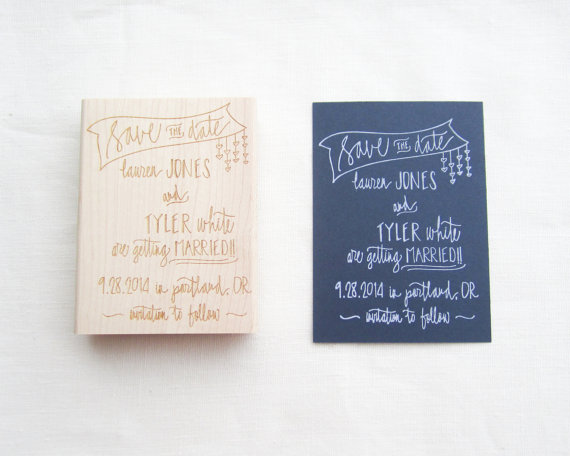 save THE date
lauren JONES
and
TYLER white
are getting MARRIED!!
9.28.2014 in portland, OR
invitation to follow
save THE date
lauren JONES
and
TYLER white
are getting MARRIED!!
9.28.2014 in portland, OR
invitation to follow